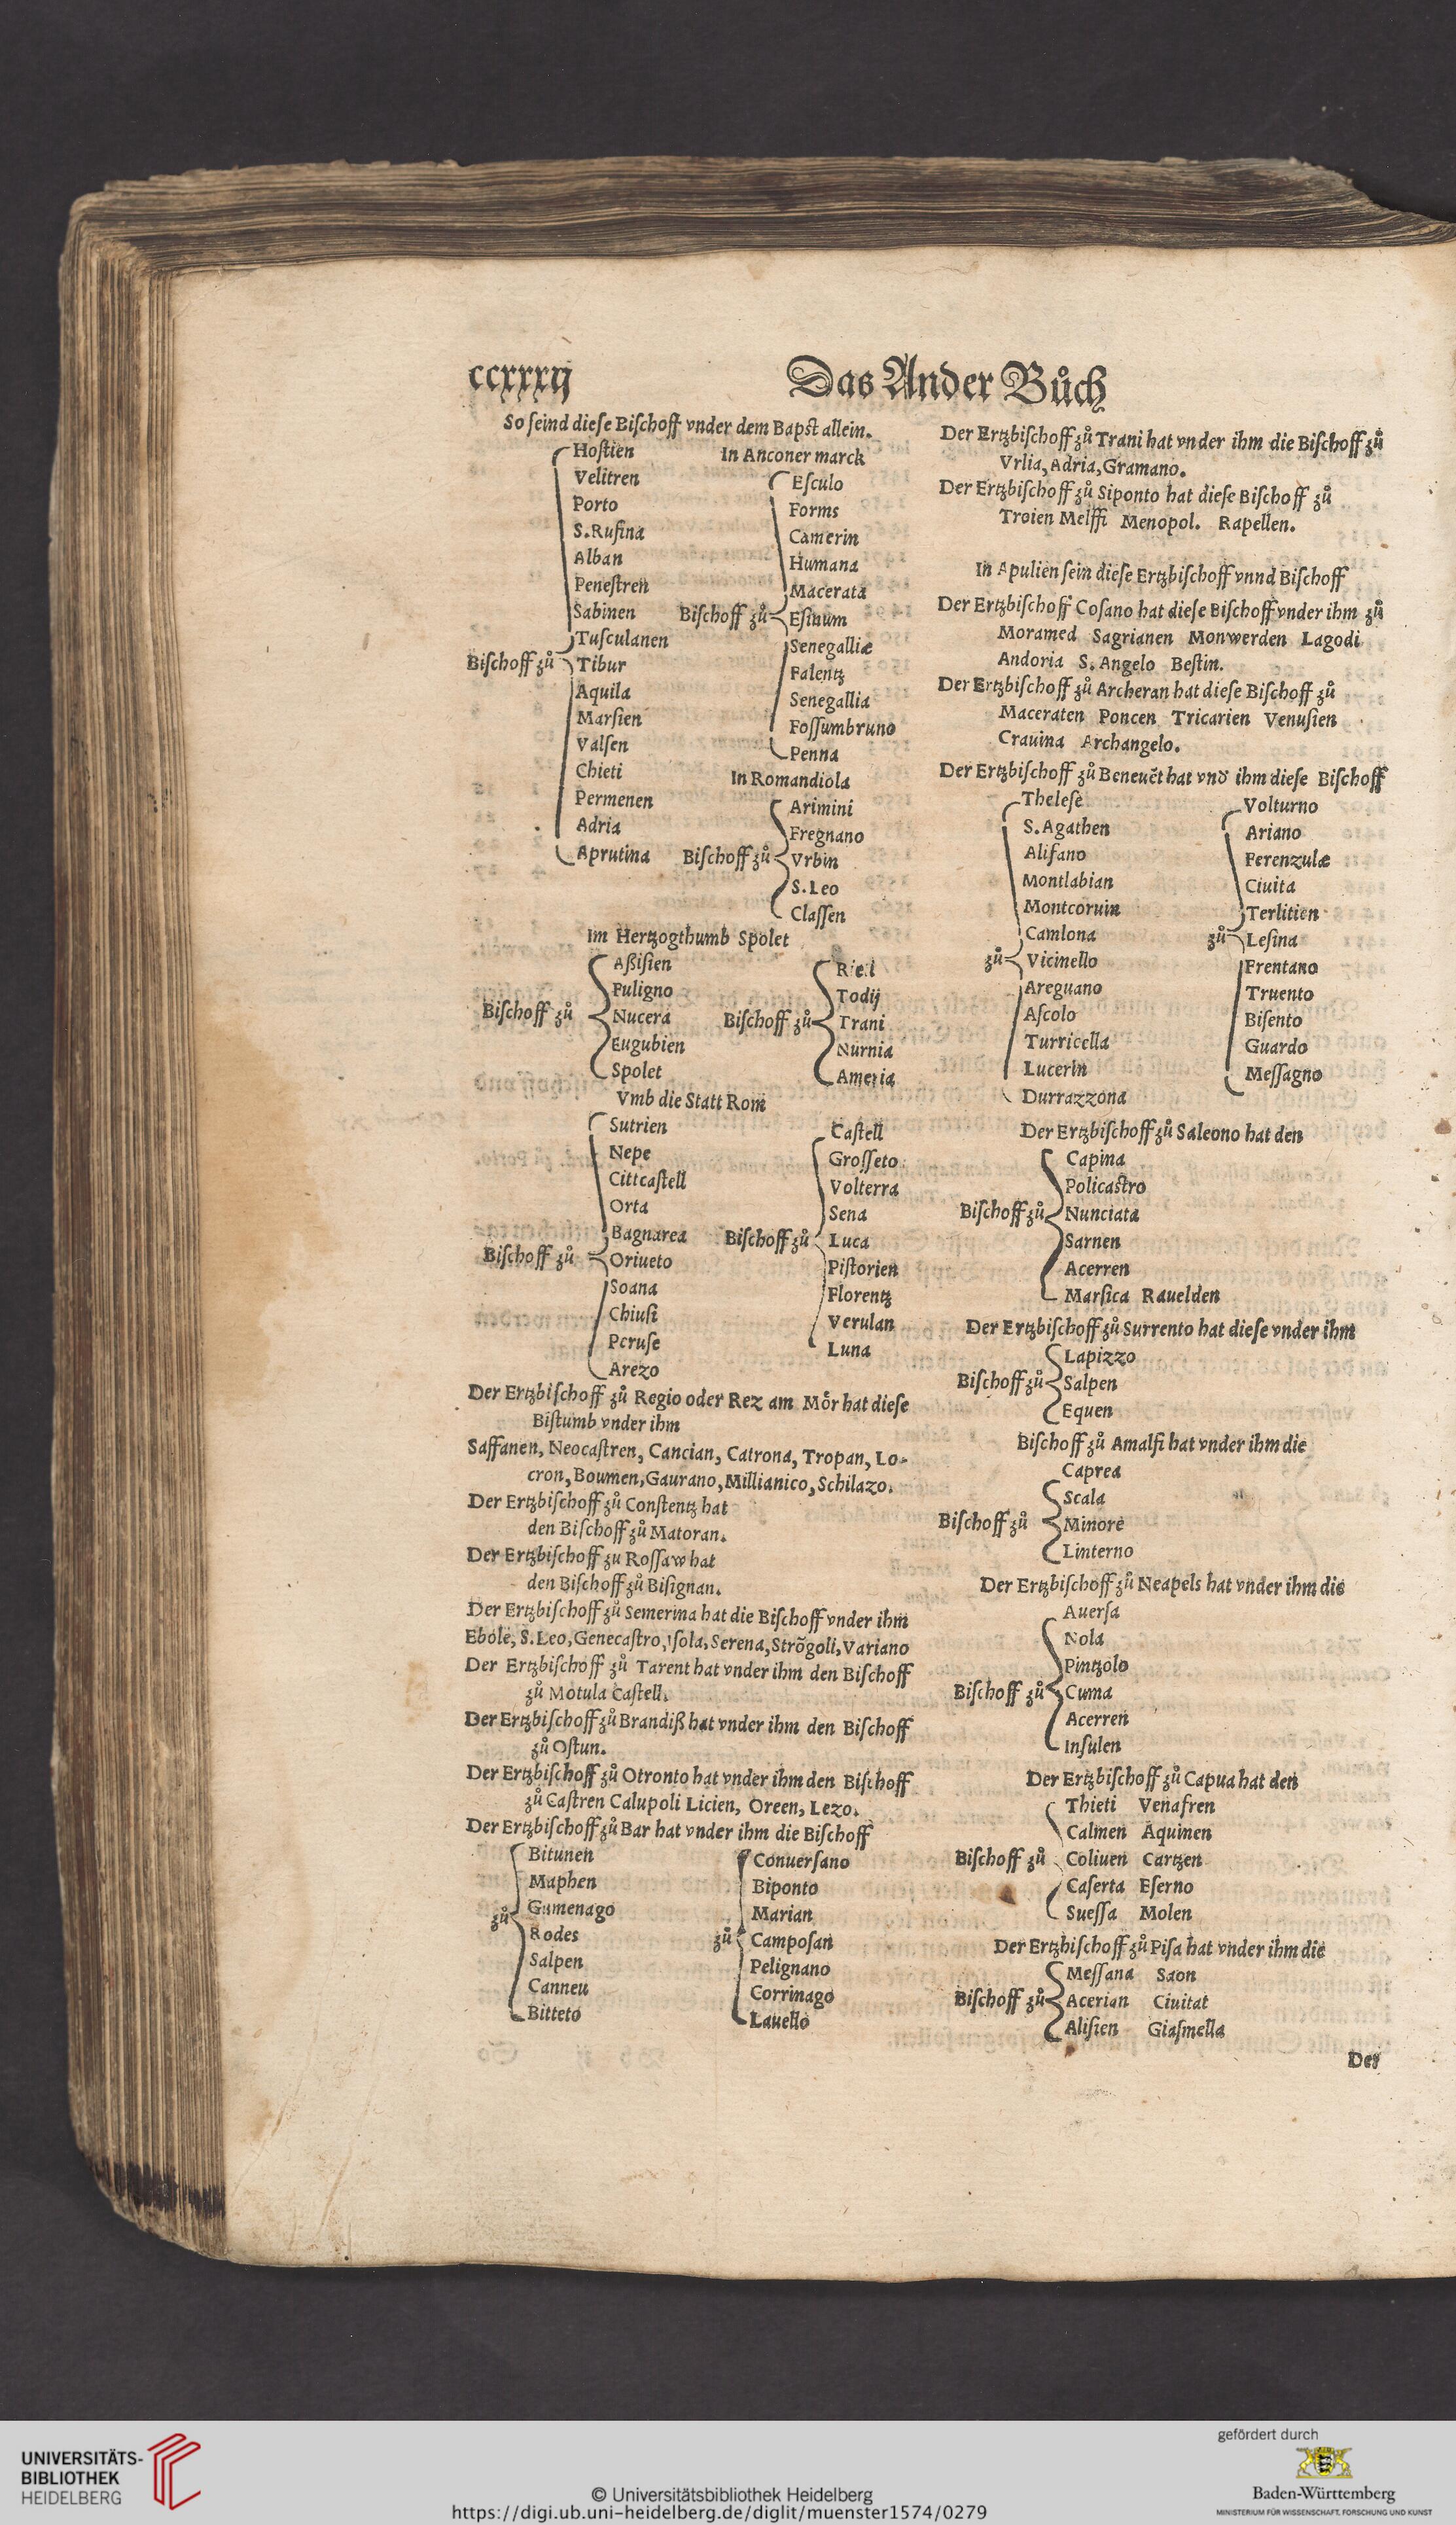 ccxxxij
Das Ander Bůch
So seind diese Bischoff vnder dem Bapst allein.
Bischoff zů
Hostien
Velitren
Porto
S. Rufina
Alban
Penestren
Sabinen
Tusculanen
Tibur
Aquila
Marsien
Valsen
Chieti
Permenen
Adria
Aprutina
In Anconer marck
Bischoff zů
Esculo
Forms
Camerin
Humana
Macerata
Esinum
Senegalliæ
Falentz
Senegallia
Fossumbruno
Penna
In Romandiola
Bischoff zů
Arimini
Fregnano
Vrbin
S. Leo
Classen
Im Hertzogthumb Spolet
Bischoff zů
Aßisien
Fuligno
Nucera
Eugubien
Spolet
Bischoff zů
Todij
Trani
Nurnia
Ameria
Vmb die Statt Rom
Bischoff zů
Sutrien
Nepe
Cittcastell
Orta
Bagnarea
Oriueto
Soana
Chiusi
Peruse
Arezo
Bischoff zů
Castell
Grosseto
Volterra
Sena
Luca
Pistorien
Florentz
Verulan
Luna
Der Ertzbischoff zů Regio oder Rez am Mör hat diese
Bistumb vnder ihm
Saffanen, Neocastren, Cancian, Catrona, Tropan, Lo-
cron, Boumen, Gaurano, Millianico, Schilazo.
Der Ertzbischoff zů Constentz hat
den Bischoff zů Matoran.
Der Ertzbischoff zu Rossaw hat
den Bischoff zů Bisignan.
Der Ertzbischoff zů Semerina hat die Bischoff vnder ihm
Ebole, S. Leo, Genecastro, Isola, Serena, Strõgoli, Variano
Der Ertzbischoff zů Tarent hat vnder ihm den Bischoff
zů Motula Castell.
Der Ertzbischoff zů Brandiß hat vnder ihm den Bischoff
zů Ostun.
Der Ertzbischoff zů Otronto hat vnder ihm den Bischoff
zů Castren Calupoli Licien, Oreen, Lezo.
Der Ertzbischoff zů Bar hat vnder ihm die Bischoff
zů
Bitunen
Maphen
Gumenago
Rodes
Salpen
Canneu
Bitteto
zů
Conuersano
Biponto
Marian
Camposan
Pelignano
Corrinago
Lauello
Der Ertzbischoff zů Trani hat vnder ihm die Bischoff zů
Vrlia, Adria, Gramano.
Der Ertzbischoff zů Siponto hat diese Bischoff zů
Troien Melffi Menopol. Rapellen.
In Apulien sein diese Ertzbischoff vnnd Bischoff
Der Ertzbischoff Cosano hat diese Bischoff vnder ihm zů
Moramed Sagrianen Monwerden Lagodi
Andoria S. Angelo Bestin.
Der Ertzbischoff zů Archeran hat diese Bischoff zů
Maceraten Poncen Tricarien Venusien
Crauina Archangelo.
Der Ertzbischoff zů Beneuẽt hat vnd ihm diese Bischoff
zů
Thelese
S. Agathen
Alifano
Montlabian
Montcoruin
Camlona
Vicinello
Areguano
Ascolo
Turricella
Lucerin
Durrazzona
zů
Volturno
Ariano
Ferenzulæ
Ciuita
Terlitien
Lesina
Frentano
Truento
Bisento
Guardo
Messagno
Der Ertzbischoff zů Saleono hat den
Bischoff zů
Capina
Policastro
Nunciata
Sarnen
Acerren
Marsica Rauelden
Der Ertzbischoff zů Surrento hat diese vnder ihm
Bischoff zů
Lapizzo
Salpen
Equen
Bischoff zů Amalfi hat vnder ihm die
Bischoff zů
Caprea
Scala
Minore
Linterno
Der Ertzbischoff zů Neapels hat vnder ihm die
Bischoff zů
Auersa
Nola
Pintzolo
Cuma
Acerren
Insulen
Der Ertzbischoff zů Capua hat den
Bischoff zů
Thieti Venafren
Calmen Aquinen
Coliuen Cartzen
Caserta Eserno
Suessa Molen
Der Ertzbischoff zů Pisa hat vnder ihm die
Bischoff zů
Messana Saon
Acerian Ciuitat
Alisien Giasmella
Der
UNIVERSITÄTS-
BIBLIOTHEK
HEIDELBERG
© Universitätsbibliothek Heidelberg
https://digi.ub.uni-heidelberg.de/diglit/muenster1574/0279
gefördert durch
Baden-Württemberg
MINISTERIUM FÜR WISSENSCHAFT, FORSCHUNG UND KUNST